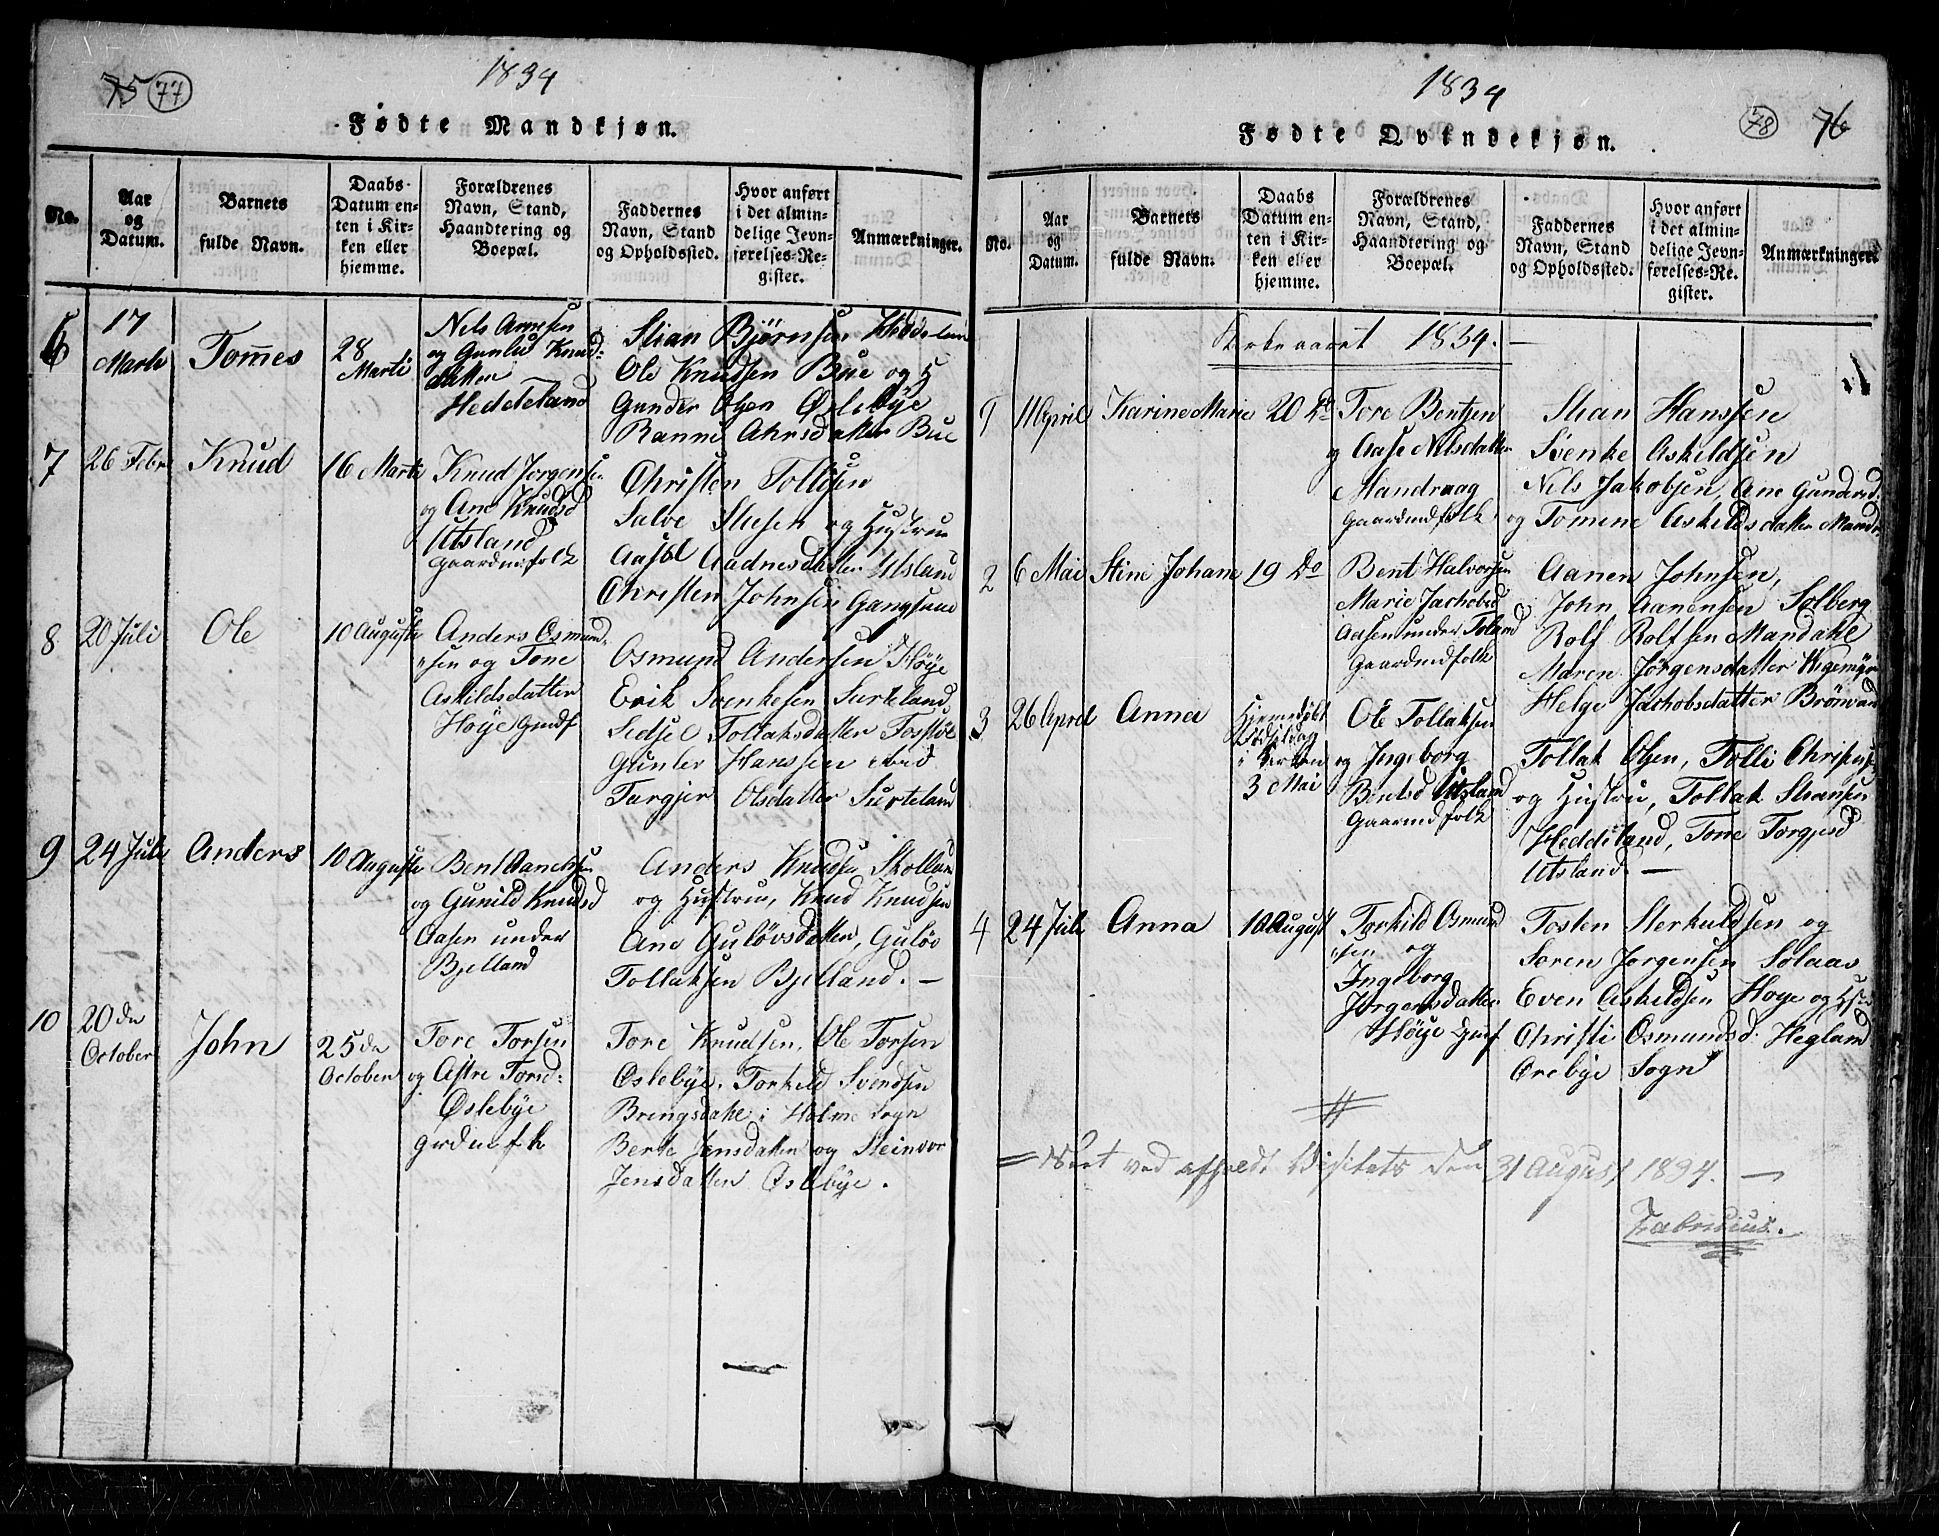 75 77
1834
Fødte Mandkjøn.
No.
Aar og Datum.
Barnets fulde Navn.
Daabs-Datum enten i Kirken eller hjemme.
Forældrenes Navn, Stand, Haandtering og Boepæl.
Faddernes Navn, Stand og Opholdssted.
Hvor anført i det almindelige Jevnførelses-Register.
Anmærkninger.
6
17
Marti
Tom̅es
28
Marti
Nels
og Gunlu Knud-
datter
Heddeland
Stian Bjørnsen
Ole Knudsen Bue og
Gunder Olsen Øslebye
Ranni datter Bue
7
26 Febr
Knud
16 Marti
Knud Jørgensen
og Ane Knudsd
Utsland
gaardmfolk
Christen Tollisen
Salve og Hustrue
Aasel Aadnesdatter Utsland
Christen Johnsen
8
20 Juli
Ole
10 Auguste
Anders Osmund-
"sen og Tone
Askildsdatter
Høye
Osmund Andersen Høye
Erik Svenkesen Surteland
Sidsel Tollaksdatter
Gunler Hanssen ibid
Targjer Olsdatter Surteland
9
24 Juli
Anders
10 Auguste
Bent
og Gunild Knudsd
Aasen under
Bjelland
Anders Knudsen
og Hustrue, Knud Knudsen
Ane Guløvsdatter, Guløv
Tollaksen Bjelland. —
10
20de
October
John
25de
October
Tore Torsen
og Astre Torsd:
Øslebye
Tore Knudsen, Ole Torsen
Øslebye. Torkeld Svendsen
Bringsdahl i Holme Sogn
Berte Jensdatter og Steinvor
Jensdatter Øslebye.
1834
78 76
Fødte Qvindekjøn.
No.
Aar og Datum.
Barnets fulde Navn.
Daabs Datum enten i Kirken eller hjemme.
Forældrenes Navn, Stand, Haandtering og Boepæl.
Faddernes Navn, Stand og Opholdssted.
Hvor anført i det almindelige Jevnførelses-Register.
Anmærkninger.
Kirkeaaret 1834. —
1
11 April
Karine Marie
20 Do
Tore Bentsen
og Aase Nilsdatter
Mandraag
gaardmdfolk
Stian Hanssen
Svenke Askildsen
Nils Jakobsen, Ane Gundersd
og Tomine Askildsdatter
2
6 Mai
Stine Johane
19 Do
Bent Halvorsen
Marie Jachobsd
Aasen under Toland
gaardmdfolk
Aanen Johnsen,
John Aanensen Solberg
Rolf Rolfsen Mandahl
Maren Jørgensdatter
Helge Jachobsdatter
3
26 April
Anna
Hjemedøbt
i Kirken
3 Mai
Ole Tollaksen
og Ingeborg
Bentsd Utsland
gaarmdfolk
Tollak Olsen, Tolli
og Hustrue, Tollak Stiansen
Heddeland, Tone Torgjusd
Utsland. —
4
24 Juli
Anna
10 August
Torkild Osmund
"sen og
Ingeborg
Jørgensdatter
Høye
Tosten Sterkuldsen og
Soren Jorgensen Solaas
Even Askeldsen Høye og
Christi Osmundsd: Hegland
Orebye Sogn
ved afholdt Visitats den 31 August 1834. —
Fabricius.